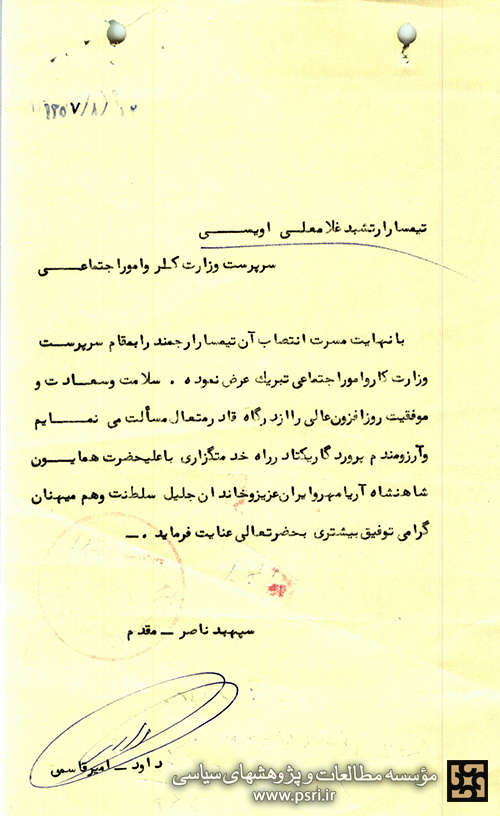 ۱۳۵۷/۸/۱۲
تیمسار ارتشبد غلامعلی اویسی
سرپرست وزارت کار و امور اجتماعی
با نهایت مسرت انتصاب آن تیمسار ارجمند را بمقام سرپرست
وزارت کار و امور اجتماعی تبریک عرض نموده . سلامت و سعادت و
موفقیت روزافزون عالی را از درگاه قادر متعال مسألت می نمایم
و آرزومندم پروردگار یکتا در راه خدمتگزاری باعلیحضرت همایون
شاهنشاه آریامهر و ایران عزیز و خاندان جلیل سلطنت و هم میهنان
گرامی توفیق بیشتری بحضرتعالی عنایت فرماید .ـ
سپهبد ناصر ـ مقدم
داود ـ امیرقاسمی
مؤسسه مطالعات و پژوهشهای سیاسی
www.psri.ir